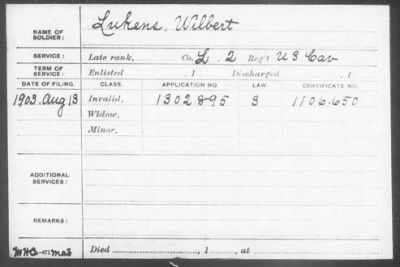 NAME OF SOLDIER: Lukens, Wilbert
SERVICE: Late rank, Co. L, 2 Reg't U S Cav
TERM OF SERVICE: Enlisted , 1 Discharged , 1
DATE OF FILING. CLASS. APPLICATION NO. LAW. CERTIFICATE NO.
1903. Aug 13 Invalid, 1302895 S 1106.650
Widow,
Minor,
ADDITIONAL SERVICES:
REMARKS:
Died , 1 , at